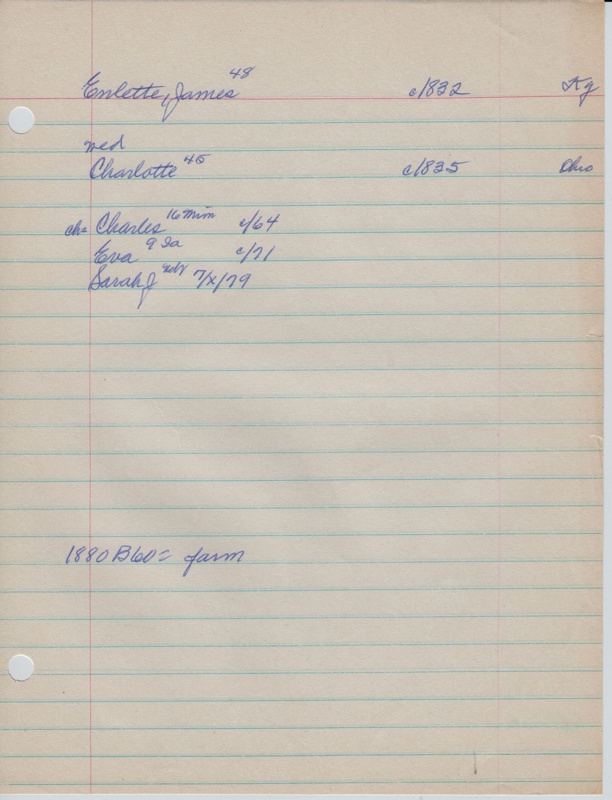 Enlette, James 48 c/1832 Ky
med
Charlotte 45 c/1835 Ohio
ch= Charles 16 Minn c/64
Eva 9 Ia c/71
Sarah J 7/x/79
1880 B60= farm